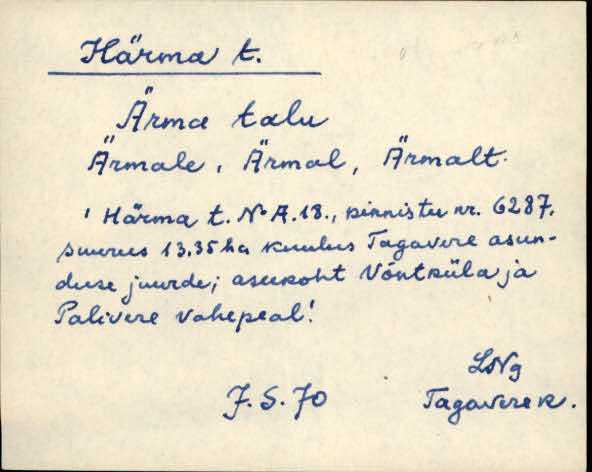 Härma t.
Ärma talu
Ärmale, Ärmal, Ärmalt.
' Härma t. No A.18., kinnistu nr. 6287.
suurus 13.35 ha kuulus Tagavere asun-
duse juurde; asukoht Võntküla ja
Palivere vahepeal!
LNg
J. S. 70 Tagavere k.